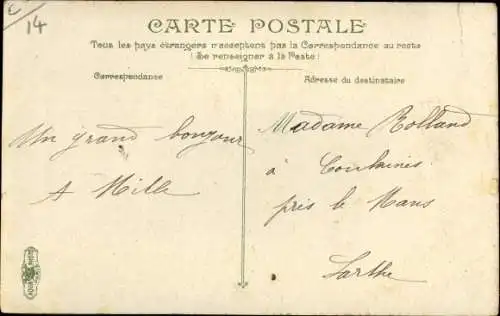 14
CARTE POSTALE
Tous les pays étrangers n'acceptent pas la Correspondance au recto
(Se renseigner à la Poste)
Correspondance
Adresse du destinataire
Un grand bonjour
A Mille
Madame Rolland
à Coulaines
près le Mans
Sarthe